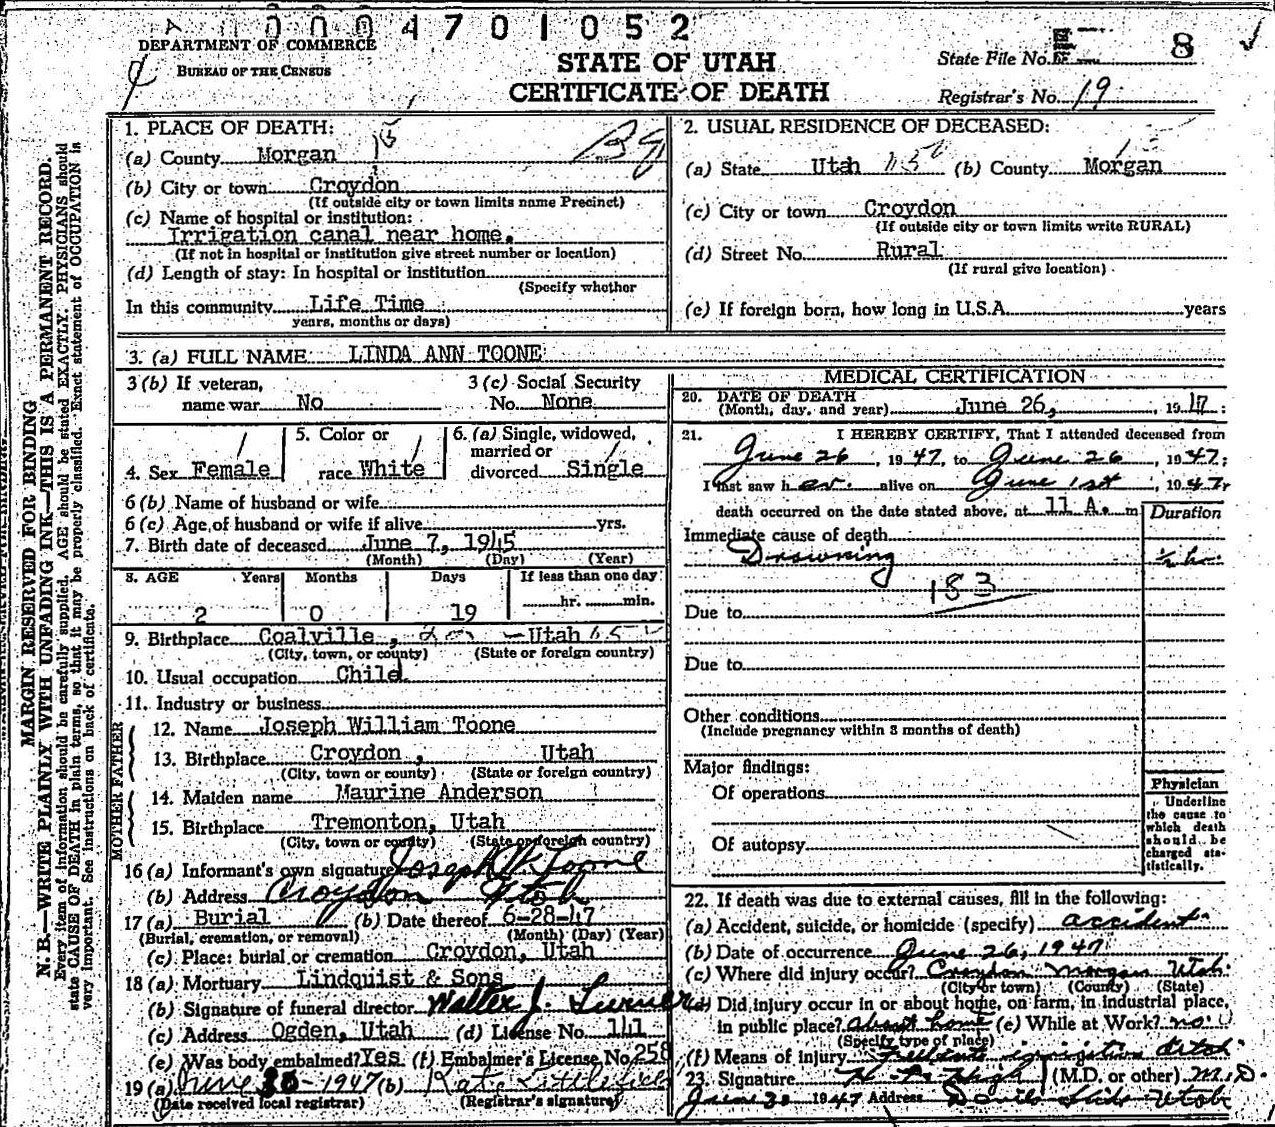 0004701052
DEPARTMENT OF COMMERCE
BUREAU OF THE CENSUS
STATE OF UTAH
CERTIFICATE OF DEATH
State File No. 8
Registrar's No. 19
MARGIN RESERVED FOR BINDING
N. B.—WRITE PLAINLY WITH UNFADING INK—THIS IS A PERMANENT RECORD.
Every item of information should be carefully supplied. AGE should be stated EXACTLY. PHYSICIANS should
state CAUSE OF DEATH in plain terms, so that it may be properly classified. Exact statement of OCCUPATION is
very important. See instructions on back of certificate.
1. PLACE OF DEATH:
(a) County Morgan
(b) City or town Croydon
(If outside city or town limits name Precinct)
(c) Name of hospital or institution:
Irrigation canal near home.
(If not in hospital or institution give street number or location)
(d) Length of stay: In hospital or institution
(Specify whether
In this community Life Time
years, months or days)
2. USUAL RESIDENCE OF DECEASED:
(a) State Utah (b) County Morgan
(c) City or town Croydon
(If outside city or town limits write RURAL)
(d) Street No. Rural
(If rural give location)
(e) If foreign born, how long in U.S.A. years
3. (a) FULL NAME LINDA ANN TOONE
3 (b) If veteran,
name war No
3 (c) Social Security
No. None
4. Sex Female
5. Color or
race White
6. (a) Single, widowed,
married or
divorced Single
6 (b) Name of husband or wife
6 (c) Age of husband or wife if alive yrs.
7. Birth date of deceased June 7, 1945
(Month) (Day) (Year)
8. AGE Years Months Days If less than one day
2 0 19 hr. min.
9. Birthplace Coalville, Utah
(City, town, or county) (State or foreign country)
10. Usual occupation Child
11. Industry or business
FATHER
12. Name Joseph William Toone
13. Birthplace Croydon, Utah
(City, town or county) (State or foreign country)
MOTHER
14. Maiden name Maurine Anderson
15. Birthplace Tremonton, Utah
(City, town or county) (State or foreign country)
16 (a) Informant's own signature Joseph W. Toone
(b) Address Croydon Utah
17 (a) Burial (b) Date thereof 6-28-47
(Burial, cremation, or removal) (Month) (Day) (Year)
(c) Place: burial or cremation Croydon, Utah
18 (a) Mortuary Lindquist & Sons
(b) Signature of funeral director Walter J.
(c) Address Ogden, Utah (d) License No. 141
(e) Was body embalmed? Yes (f) Embalmer's License No. 258
19 (a) June 30-1947 (b) Kate Littlefield
(Date received local registrar) (Registrar's signature)
MEDICAL CERTIFICATION
20. DATE OF DEATH
(Month, day, and year) June 26, 1947
21. I HEREBY CERTIFY, That I attended deceased from
June 26, 1947, to June 26, 1947;
I last saw her alive on June 1st, 1947
death occurred on the date stated above, at 11 A. m
Duration
Immediate cause of death
Drowning ½ hr.
183
Due to
Due to
Other conditions
(Include pregnancy within 3 months of death)
Major findings:
Of operations
Of autopsy
Physician
Underline
the cause to
which death
should be
charged sta-
tistically.
22. If death was due to external causes, fill in the following:
(a) Accident, suicide, or homicide (specify) accident
(b) Date of occurrence June 26, 1947
(c) Where did injury occur? Croydon Morgan Utah
(City or town) (County) (State)
(d) Did injury occur in or about home, on farm, in industrial place,
in public place? about home (e) While at Work? no
(Specify type of place)
(f) Means of injury irrigation ditch
23. Signature (M.D. or other) M.D.
June 30 1947 Address Devils Slide Utah